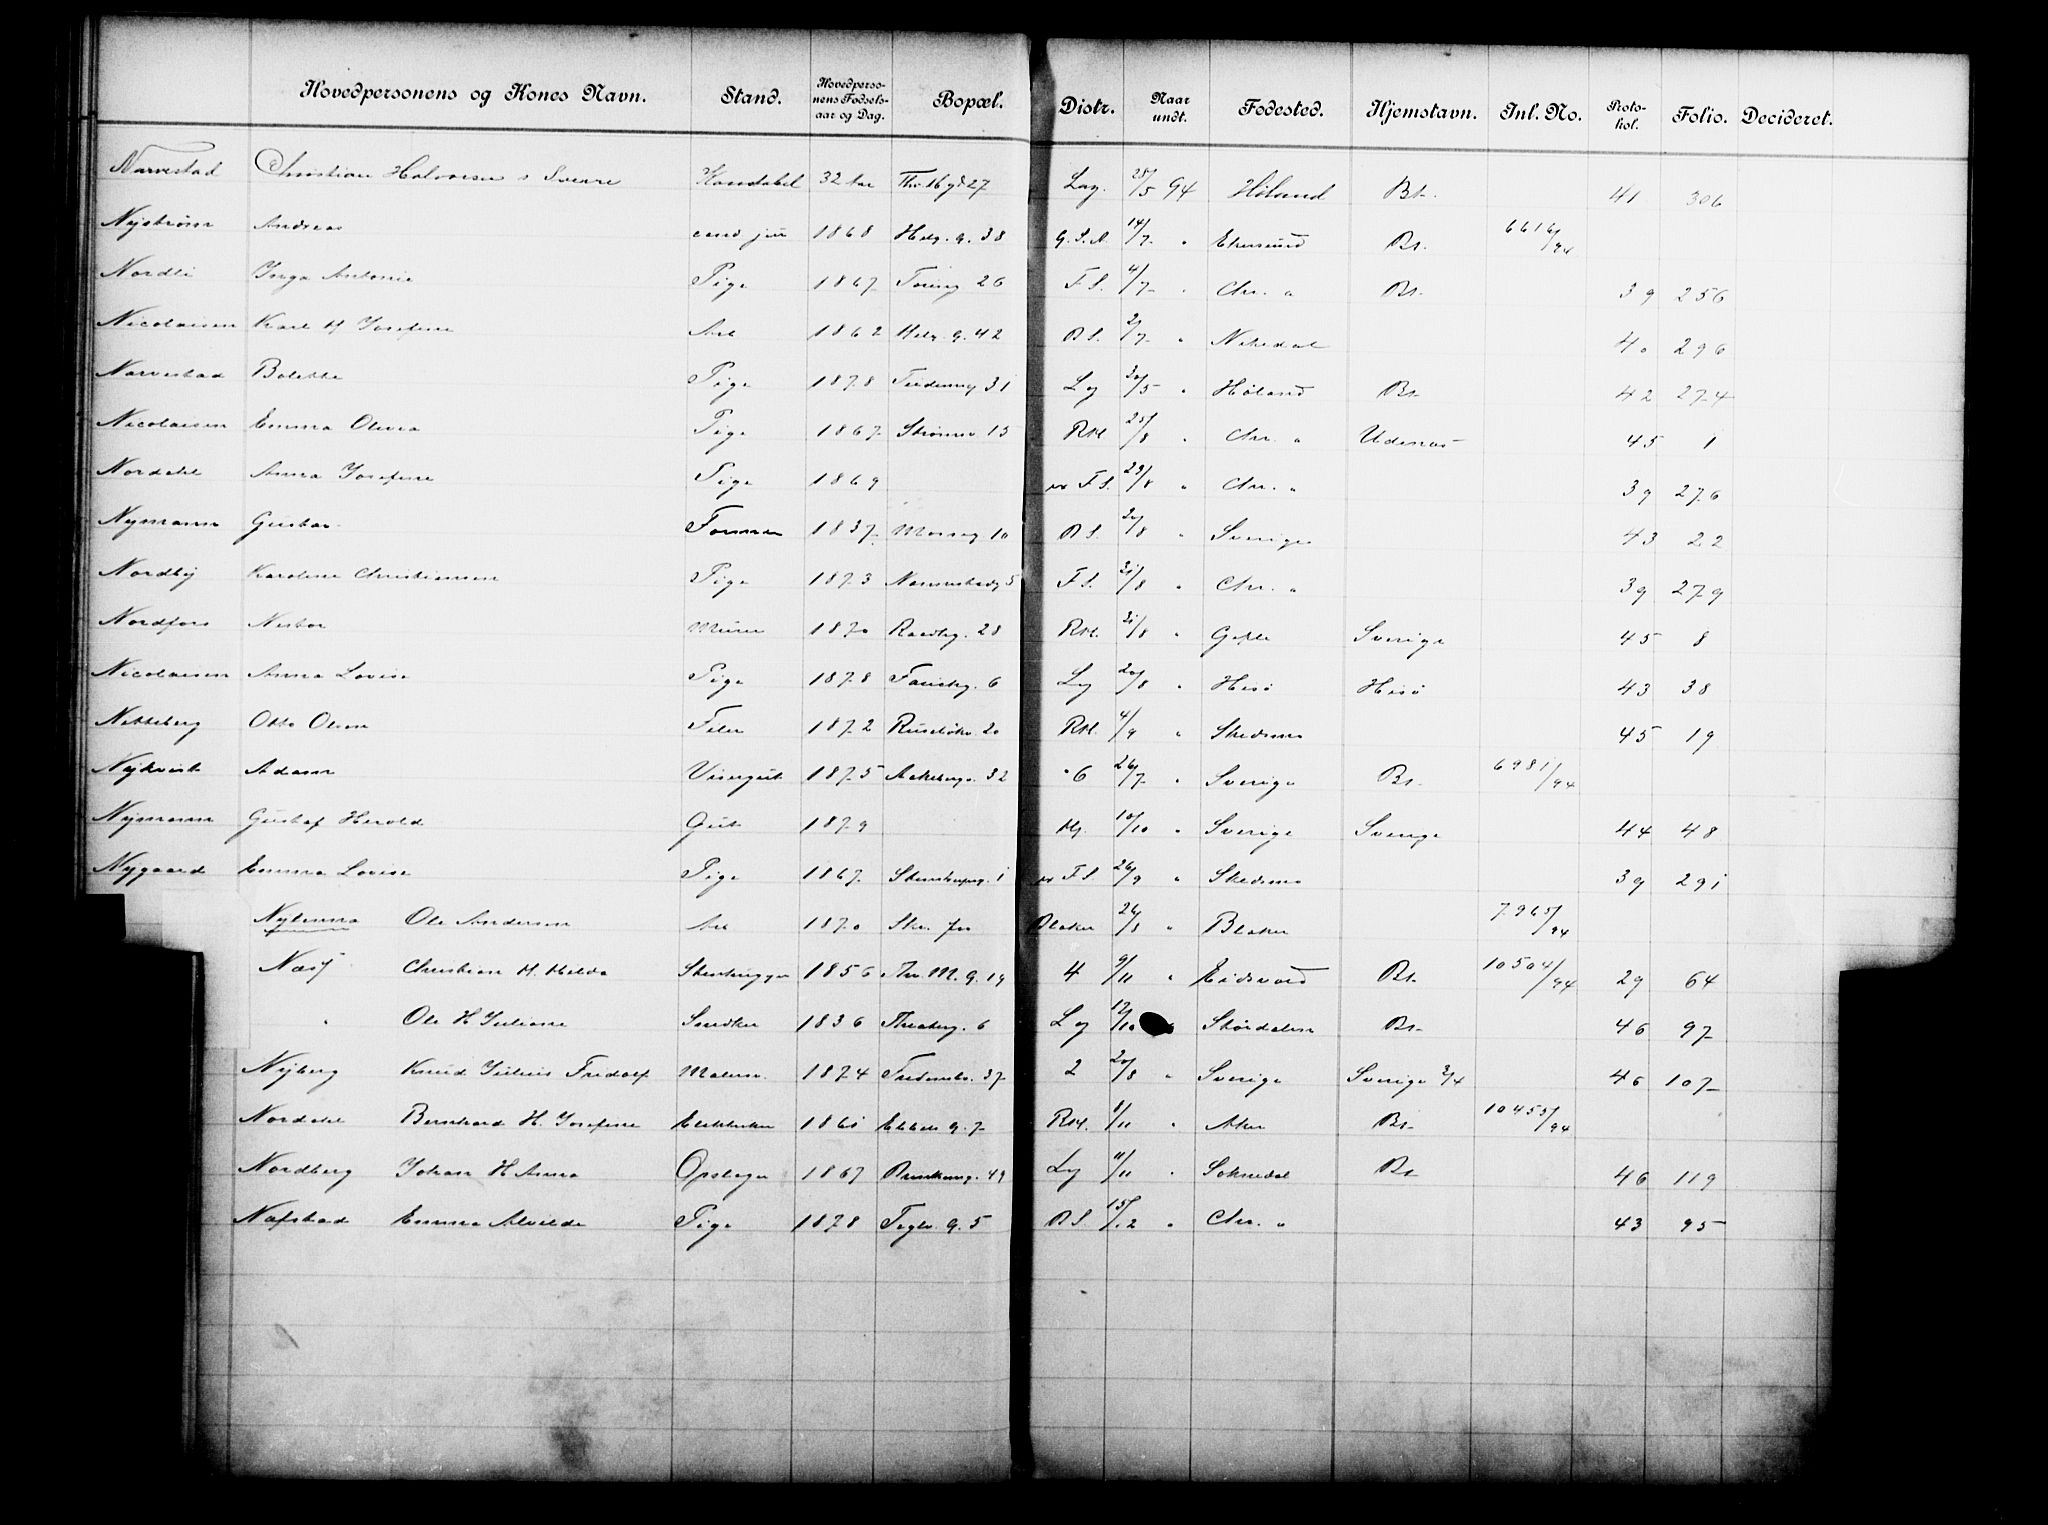 Hovedpersonens og Kones Navn. Stand. Hovedpersonens Fødselsaar og Dag. Bopæl. Distr. Naar undt. Fødested. Hjemstavn. Inl. No. Protokol. Folio. Decideret.
Narvestad Christian Halvorsen 32 aar 27 Lag. 25/5 94 Høland Bt. 41 306
Nystrøm Andreas cand jur 1868 Helg. g. 38 G.S.N. 14/7 " Ekersund Bt. 6616/94
Nordli Inga Antonie Pige 1867 26 F.S. 4/7 " Chr. " Bt. 39 256
Nicolaisen Karl H Josefine Arb 1862 Helg. g. 42 B S. 2/7 " Nitedal 40 296
Narvestad Bolette Pige 1878 31 Lg 30/5 " Høland Bt. 42 274
Nicolaisen Emma Olivia Pige 1867 Strømsv. 15 RM 25/8 " Chr. " Udenæs 45 1
Nordahl Anna Josefine Pige 1869 F.S. 29/8 " Chr. " 39 276
Nymann Gustav 1837 Mosseg. 10 B S. 30/8 " Sverige 43 22
Nordby Karoline Christiansen Pige 1873 Nannestadg 5 F S. 31/8 " Chr. " 39 279
Nordfors Nestor Murer 1870 28 RM. 31/8 " Gefle Sverige 45 8
Nicolaisen Anna Lovise Pige 1878 6 Lg 20/8 " Hisø Hisø 43 38
Netteberg Otto Olsen 1872 Ruseløkv. 20 RM. 4/9 " Skedsmo 45 19
Nykvist Adam Visergut 1875 Aakebergv. 32 6 26/7 " Sverige Bt. 6981/94
Nymann Gustaf Herold Gut 1879 10/10 " Sverige Sverige 44 48
Nygaard Emma Lovise Pige 1867 1 F S. 26/9 " Skedsmo 39 291
Nylenna Ole Andersen Arb 1870 Blaker 26/8 " Blaker 7965/94
Næss Christian H. Hilda Stenhugger 1856 Thv. M. g. 19 4 9/11 " Eidsvold Bt. 10504/94 29 64
" Ole H Juliane Snedker 1836 6 Lg 12/10 Størdalen Bt. 46 97
Nyberg Knud Julius Fridolf Malersv. 1874 37 2 20/8 " Sverige Sverige 3/4 46 107
Nordahl Bernhard H. Josefine 1861 7 RM. 8/11 " Aker Bt. 10455/94
Nordberg Johan H Anna Opslager 1867 49 Lg 11/11 " Soknedal Bt 46 119
Nafstad Emma Alvilde Pige 1878 Teglv. g. 5 B S. 15/12 " Chr. " 43 95